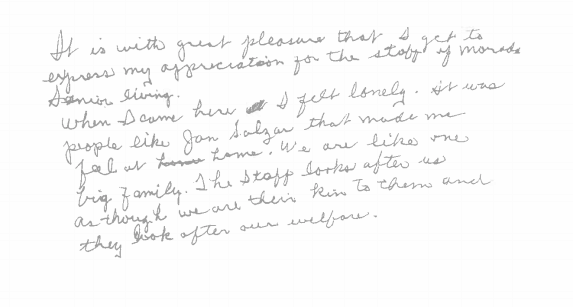 It is with great pleasure that I get to
express my appreciation for the staff of Morada
Senior living.
When I came here I felt lonely. It was
people like Jan Salzar that made me
feel at home. We are like one
big family. The staff looks after us
as though we are their kin to them and
they look after our welfare.